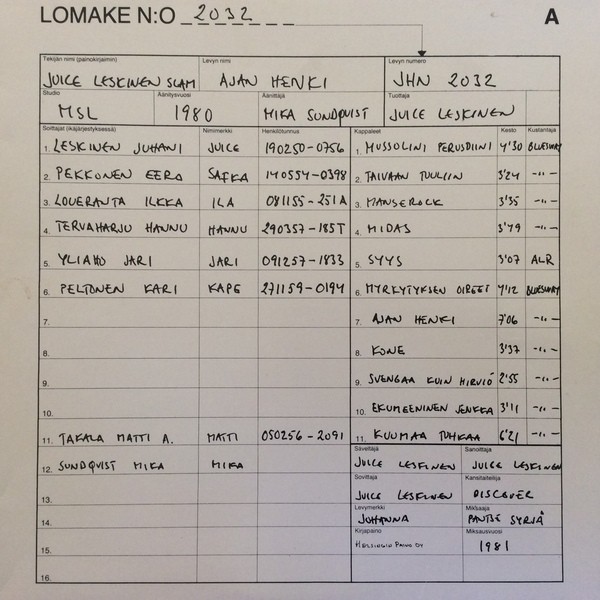 LOMAKE N:O 2032 A
Tekijän nimi (painokirjaimin) Levyn nimi Levyn numero
JUICE LESKINEN SLAM AJAN HENKI JHN 2032
Studio Äänitysvuosi Äänittäjä Tuottaja
MSL 1980 MIKA SUNDQVIST JUICE LESKINEN
Soittajat (ikäjärjestyksessä) Nimimerkki Henkilötunnus Kappaleet Kesto Kustantaja
1. LESKINEN JUHANI JUICE 190250-0756 1. MUSSOLINI PERUSDIINI 4'30 BLUESWAY
2. PEKKONEN EERO SAFKA 140554-0398 2. TAIVAAN TUULIIN 3'24 -"-
3. LOUERANTA ILKKA ILA 081155-251A 3. MANSEROCK 3'35 -"-
4. TERVAHARJU HANNU HANNU 290357-185T 4. MIDAS 3'49 -"-
5. YLIAHO JARI JARI 091257-1833 5. SYYS 3'07 ALR
6. PELTONEN KARI KAPE 271159-0194 6. MYRKYTYKSEN OIREET 4'12 BLUESWAY
7. 7. AJAN HENKI 7'06 -"-
8. 8. KONE 3'37 -"-
9. 9. SVENGAA KUIN HIRVIÖ 2'55 -"-
10. 10. EKUMEENINEN JENKKA 3'11 -"-
11. TAKALA MATTI A. MATTI 050256-2091 11. KUUMAA TUHKAA 6'21 -"-
Säveltäjä Sanoittaja
12. SUNDQVIST MIKA MIKA JUICE LESKINEN JUICE LESKINEN
Sovittaja Kansitaiteilija
13. JUICE LESKINEN DISCOVER
Levymerkki Miksaaja
14. JOHANNA PANTSE SYRJÄ
Kirjapaino Miksausvuosi
15. HELSINGIN PAINO OY 1981
16.